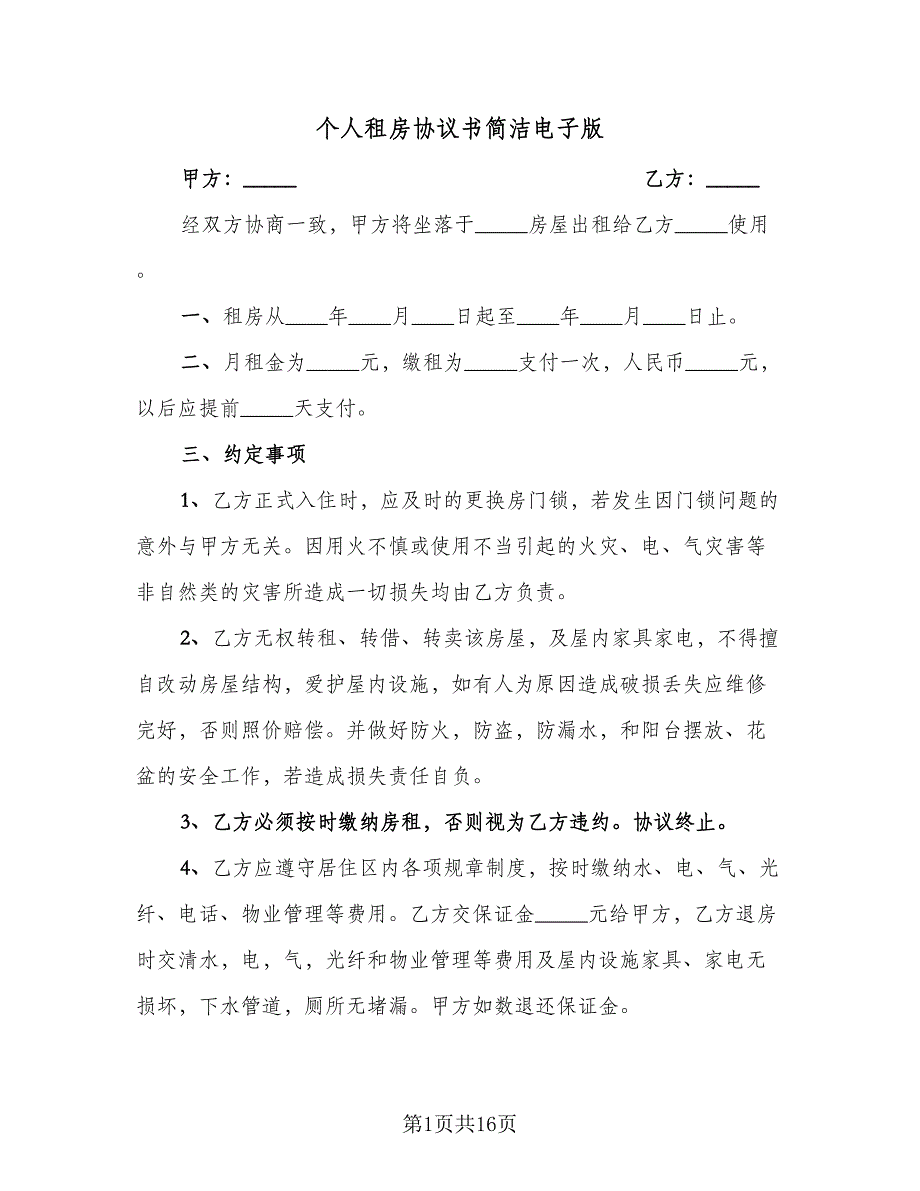 个人租房协议书简洁电子版
甲方：_____ 乙方：_____
经双方协商一致，甲方将坐落于_____房屋出租给乙方_____使用
。
一、租房从____年____月____日起至____年____月____日止。
二、月租金为_____元，缴租为_____支付一次，人民币_____元，
以后应提前_____天支付。
三、约定事项
1、乙方正式入住时，应及时的更换房门锁，若发生因门锁问题的
意外与甲方无关。因用火不慎或使用不当引起的火灾、电、气灾害等
非自然类的灾害所造成一切损失均由乙方负责。
2、乙方无权转租、转借、转卖该房屋，及屋内家具家电，不得擅
自改动房屋结构，爱护屋内设施，如有人为原因造成破损丢失应维修
完好，否则照价赔偿。并做好防火，防盗，防漏水，和阳台摆放、花
盆的安全工作，若造成损失责任自负。
3、乙方必须按时缴纳房租，否则视为乙方违约。协议终止。
4、乙方应遵守居住区内各项规章制度，按时缴纳水、电、气、光
纤、电话、物业管理等费用。乙方交保证金_____元给甲方，乙方退房
时交清水，电，气，光纤和物业管理等费用及屋内设施家具、家电无
损坏，下水管道，厕所无堵漏。甲方如数退还保证金。
第1页共16页